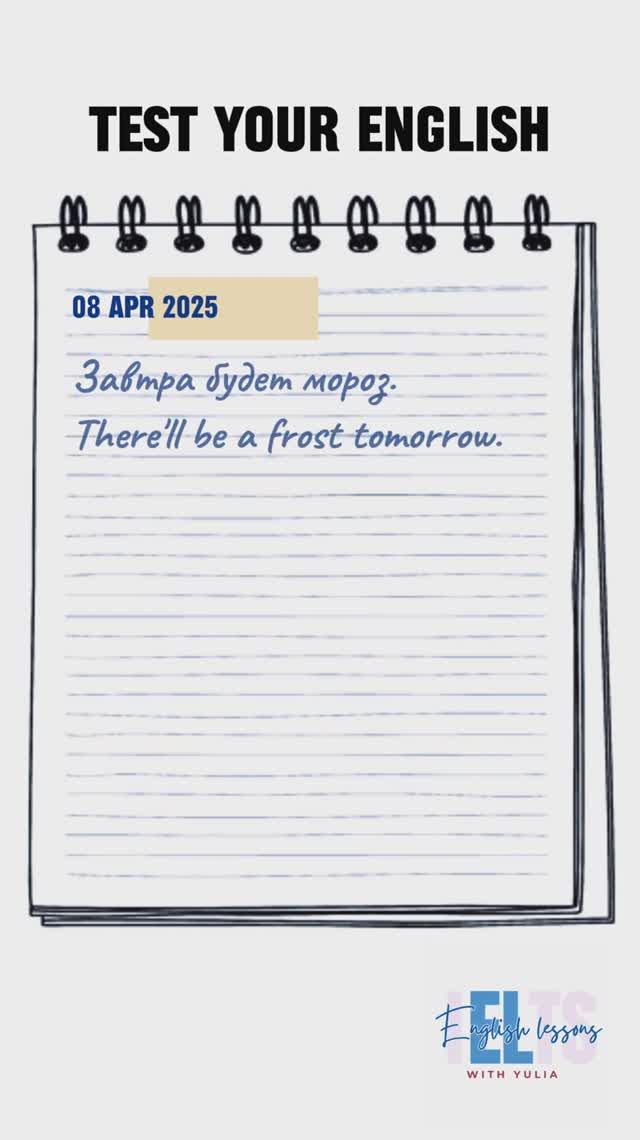 TEST YOUR ENGLISH
08 APR 2025
Завтра будет мороз.
There'll be a frost tomorrow.
IELTS
English lessons
WITH YULIA